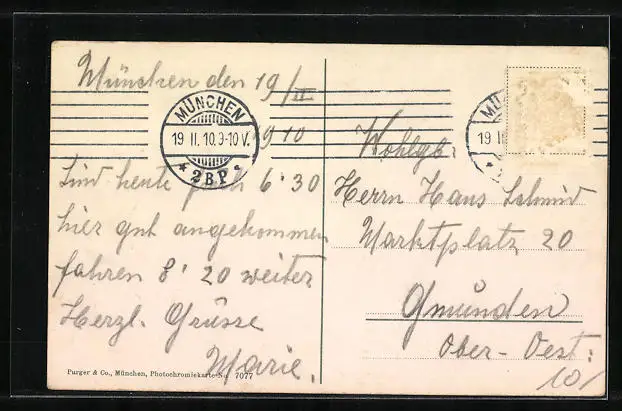 München den 19/II
1910
MÜNCHEN
19 II. 10. 9-10 V.
* 2 B.P. *
Sind heute früh 6'30
hier gut angekommen
fahren 8'20 weiter
Herzl. Grüsse
Marie.
Purger & Co., München, Photochromiekarte No. 7077
MÜ
19 II
Wohlgb.
Herrn Hans Schmid
Marktplatz 20
Gmunden
Ober-Oest:
10/